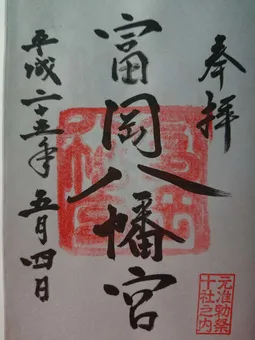 奉拝
富岡八幡宮
平成二十五年 五月四日
元准勅祭
十社之内